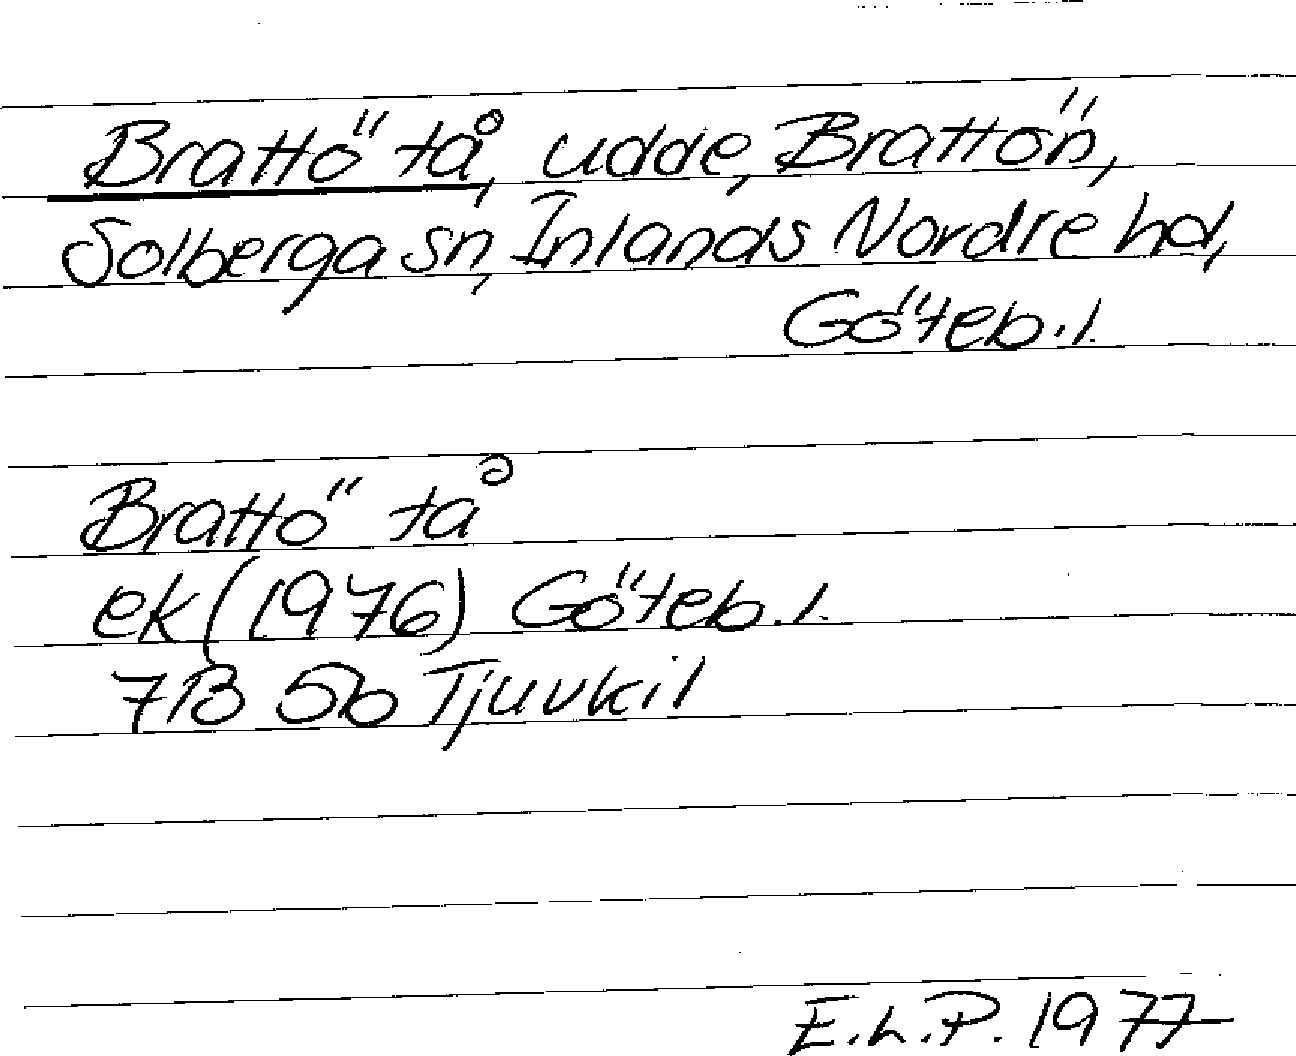 Brattö tå, udde, Brattön,
Solberga sn, Inlands Nordre hd,
Göteb.l.
Brattö tå
ek (1976) Göteb.l.
7B 5b Tjuvkil
E.L.P. 1977